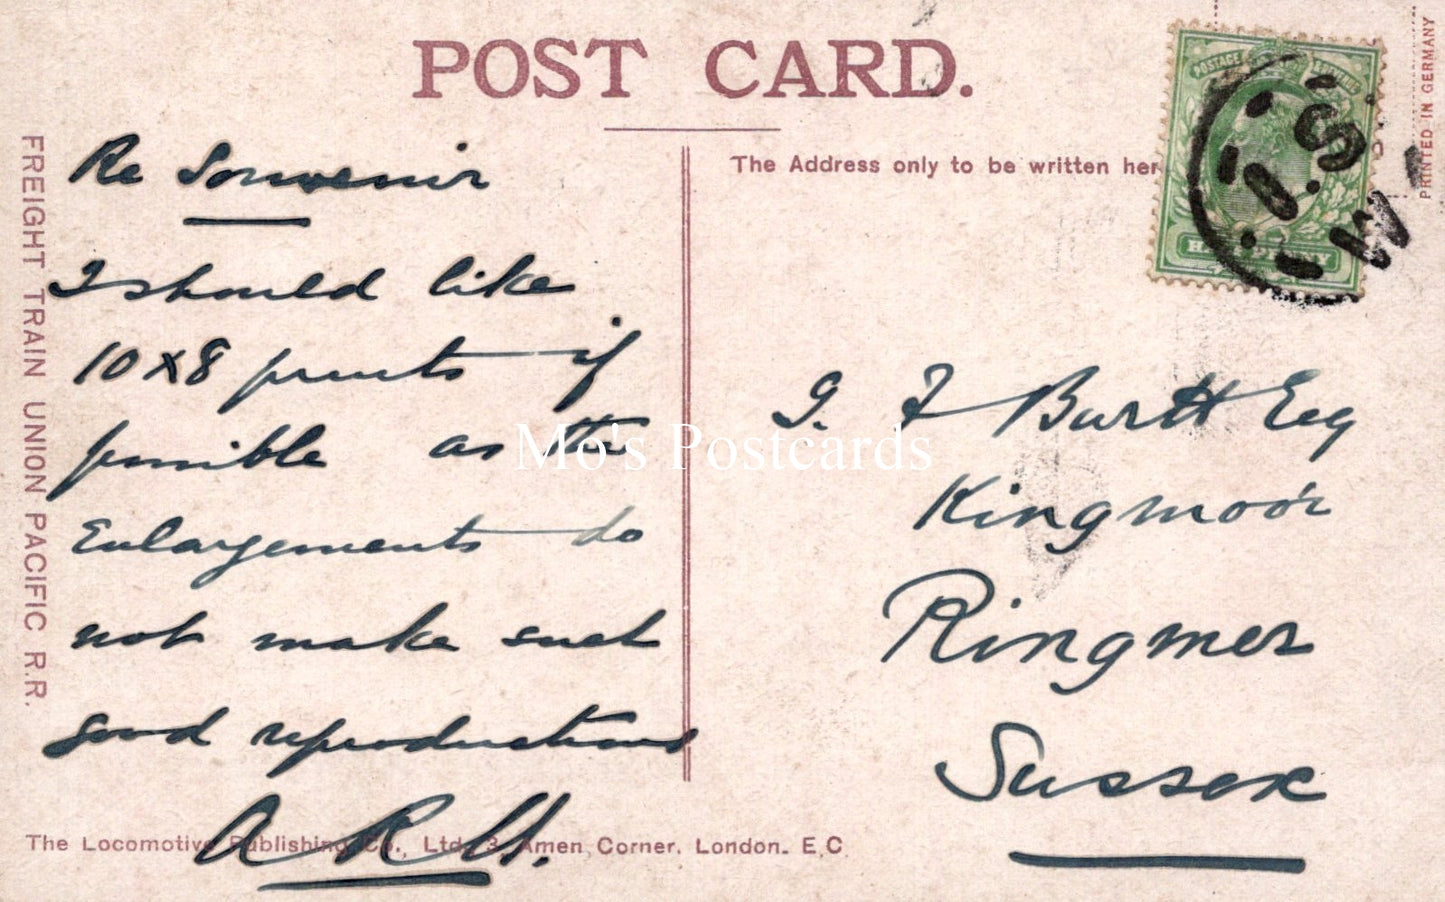 POST CARD.
The Address only to be written her
PRINTED IN GERMANY
POSTAGE
HALFPENNY
FREIGHT TRAIN UNION PACIFIC R.R.
Re Souvenir
I should like
10 x 8 prints if
possible as the
Enlargements do
not make such
good reproductions
A R
G. F Burtt Esq
Kingmoor
Ringmer
Sussex
The Locomotive Publishing Co., Ltd. 3 Amen Corner. London. E.C
Mo's Postcards